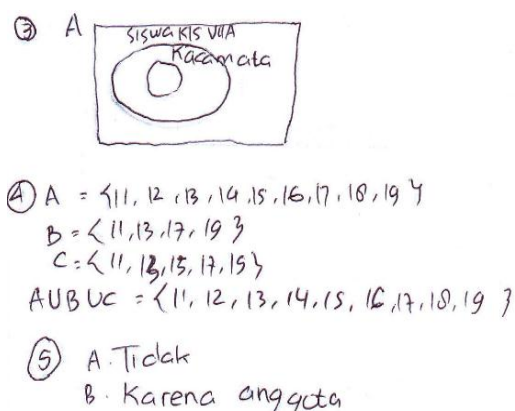 ③ A
SISWA KIS VIIA
Kacamata
④ A = {11, 12, 13, 14, 15, 16, 17, 18, 19}
B = {11, 13, 17, 19}
C = {11, 13, 15, 17, 19}
A U B U C = {11, 12, 13, 14, 15, 16, 17, 18, 19}
⑤ A. Tidak
B. Karena anggota